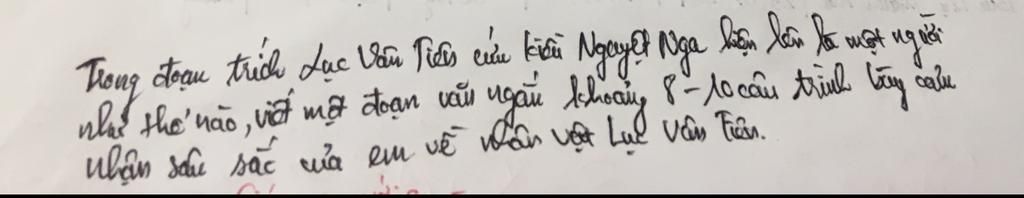 Trong đoạn trích Lục Vân Tiên cứu Kiều Nguyệt Nga hiện lên là một người
như thế nào, viết một đoạn văn ngắn khoảng 8-10 câu trình bày cảm
nhận sâu sắc của em về nhân vật Lục Vân Tiên.